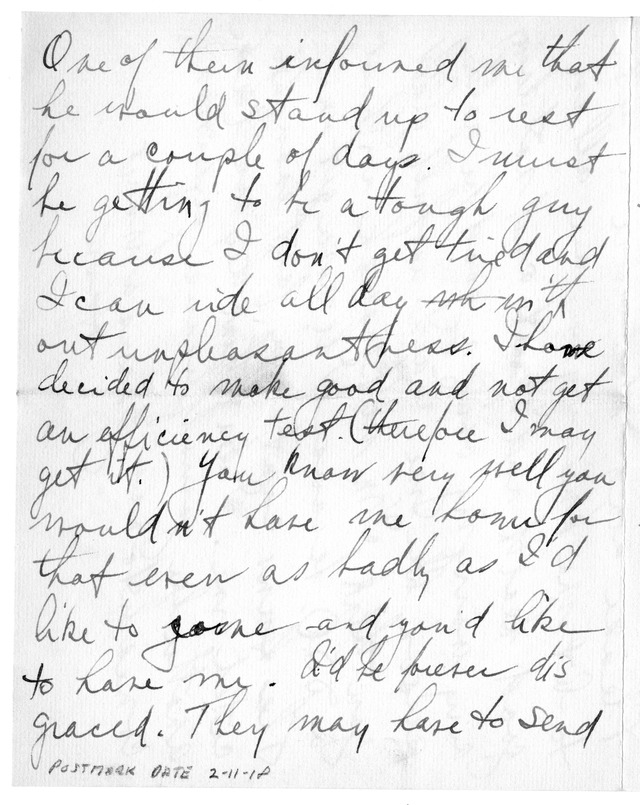 One of them informed me that
he would stand up to rest
for a couple of days. I must
be getting to be a tough guy
because I don't get tired and
I can ride all day with
out unpleasantness. I have
decided to make good and not get
an efficiency test. (therefore I may
get it.) You know very well you
wouldn't have me home for
that even as badly as I'd
like to and you'd like
to have me. I'd be forever dis
graced. They may have to send
POSTMARK DATE 2-11-18